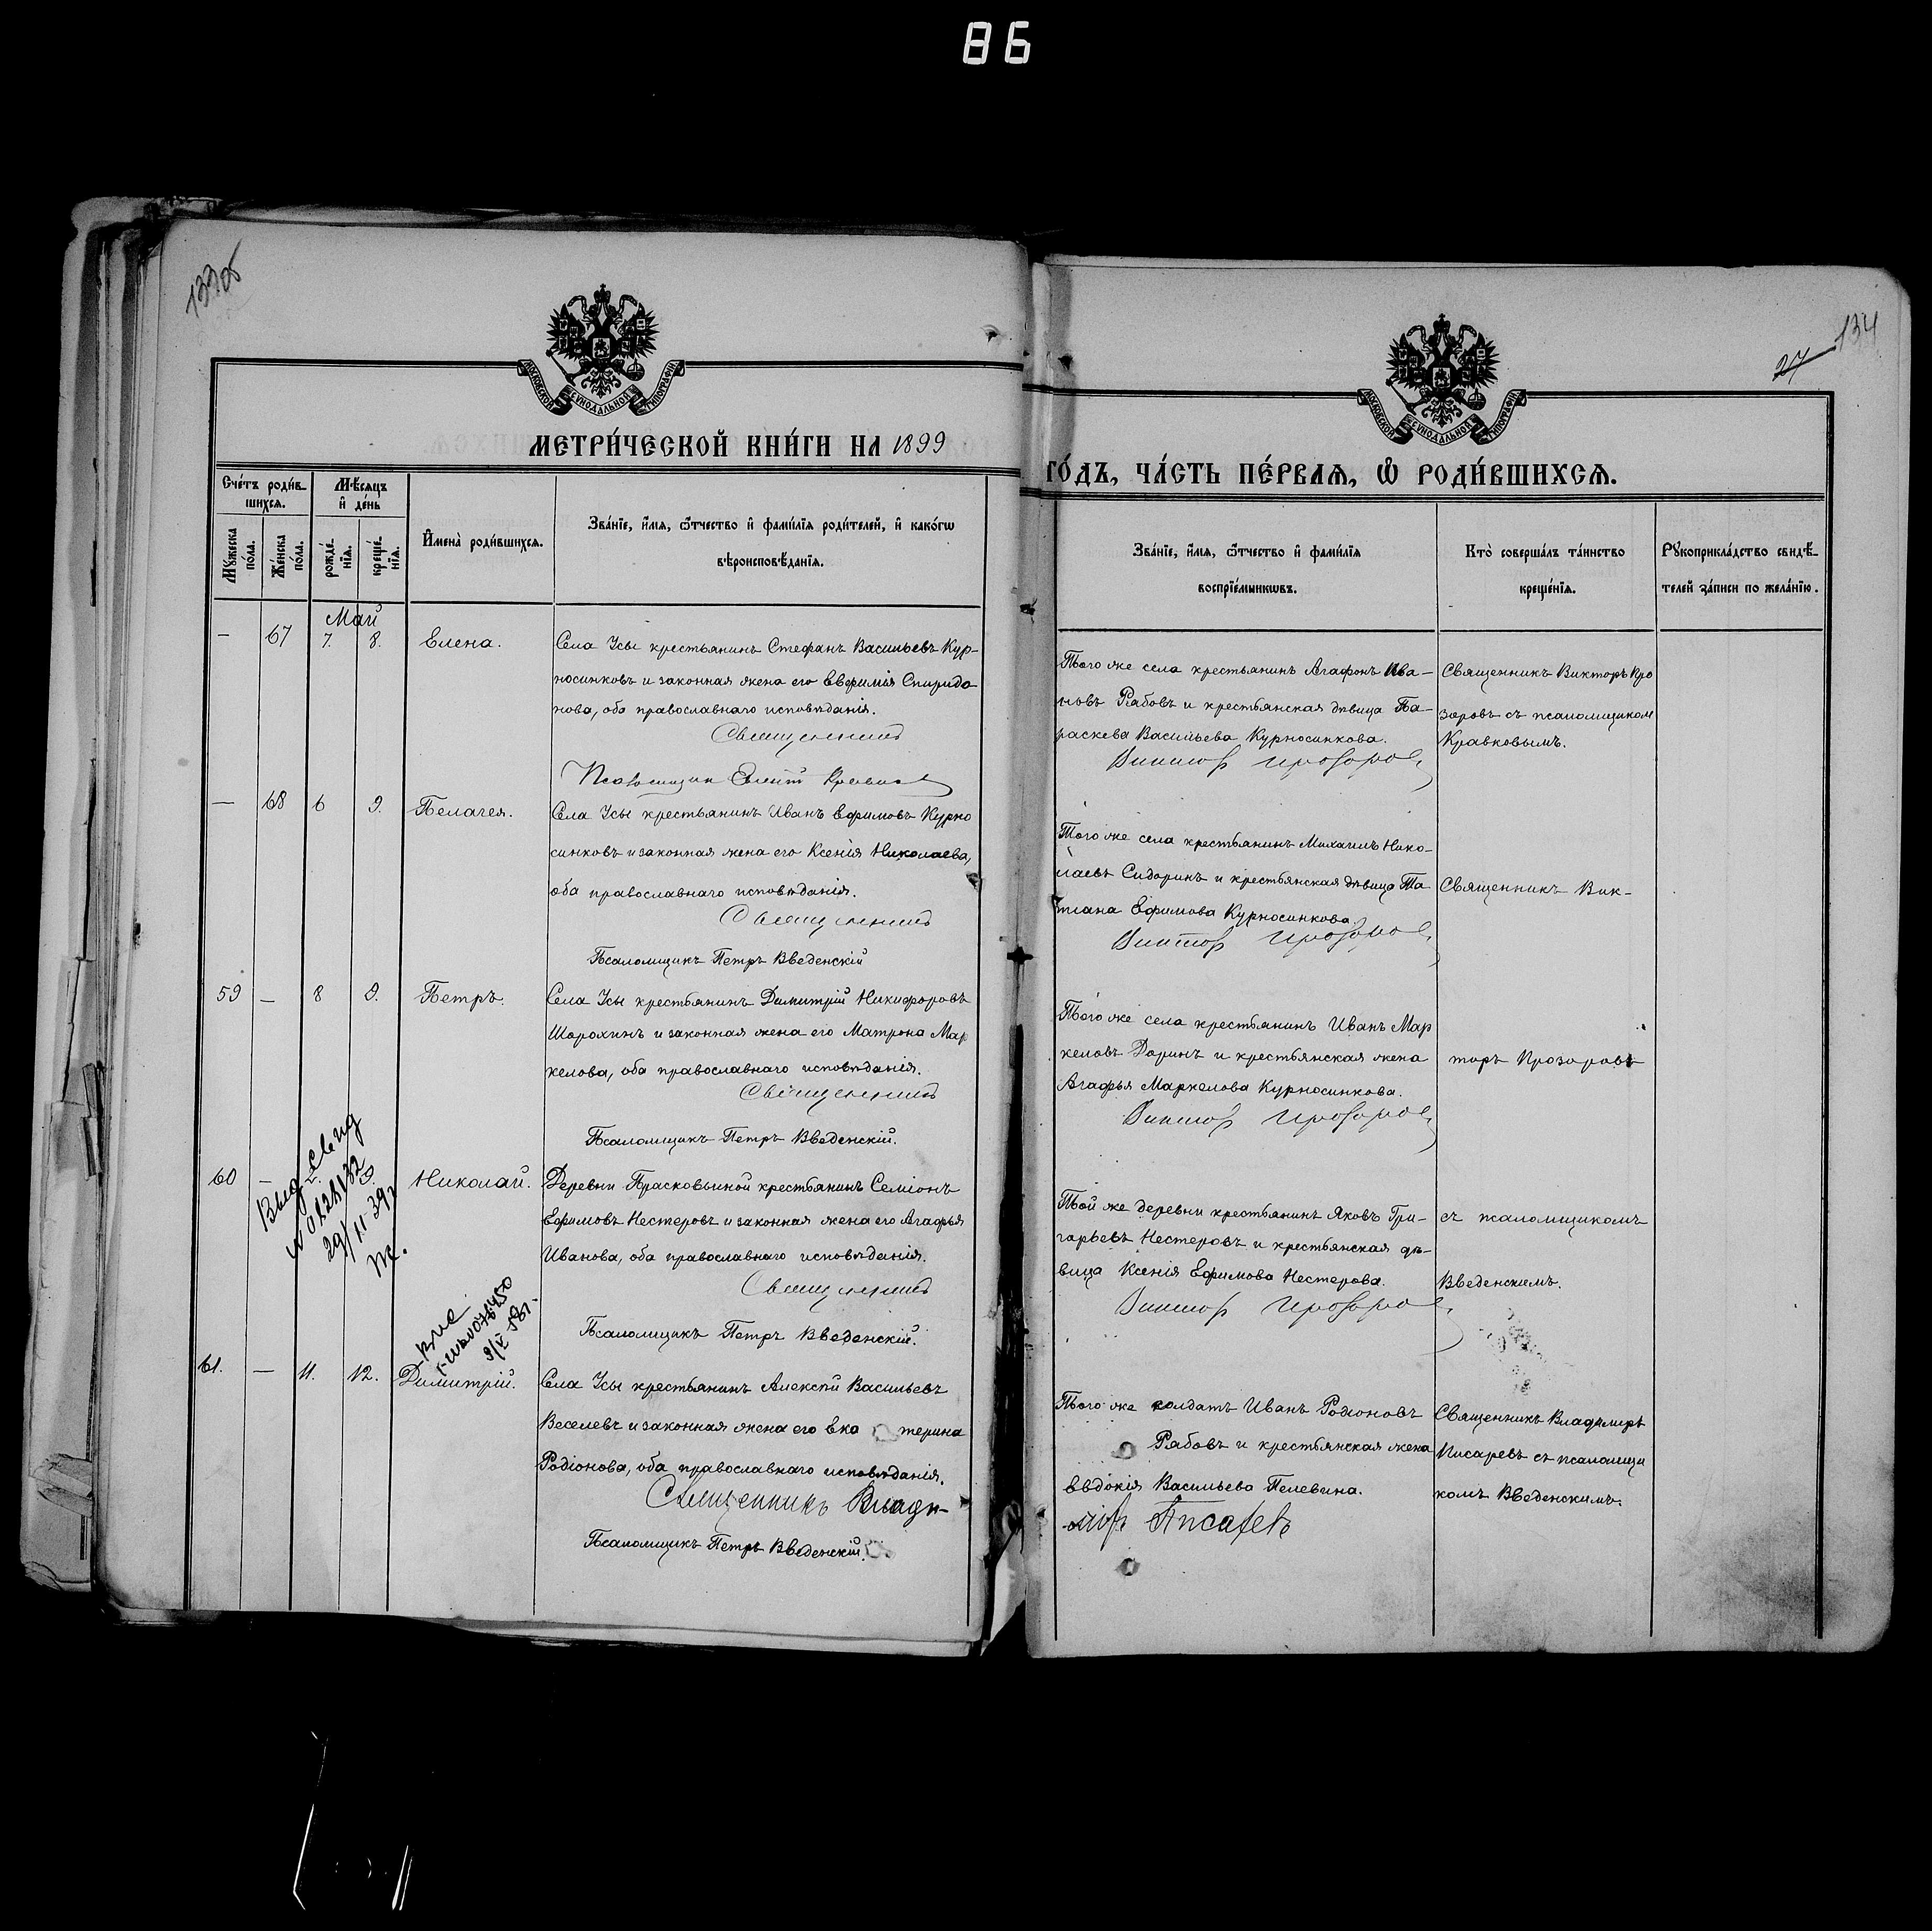 86
133об
134
27
МОСКОВСКОЙ СѴНОДАЛЬНОЙ ТИПОГРАФІИ
МОСКОВСКОЙ СѴНОДАЛЬНОЙ ТИПОГРАФІИ
МЕТРИ́ЧЕСКОЙ КНИ́ГИ НА 1899
ГО́ДЪ, ЧА́СТЬ ПЕ́РВАѦ, Ѿ РОДИ́ВШИХСѦ.
Сче́тъ роди́в-
шихсѧ.
Мѣ́сѧцъ
и҆ де́нь
Мꙋ́жеска
по́ла.
Же́нска
по́ла.
рожде́-
нїѧ.
креще́-
нїѧ.
И҆мена̀ роди́вшихсѧ.
Зва́нїе, и҆́мѧ, ѻ҆́тчество и҆ фами́лїѧ роди́телей, и҆ како́гѡ
вѣроисповѣ́данїѧ.
Зва́нїе, и҆́мѧ, ѻ҆́тчество и҆ фами́лїѧ
воспрїе́мникѡвъ.
Кто̀ соверша́лъ та́инство
креще́нїѧ.
Рꙋкоприкла́дство свидѣ́-
телей за́писи по жела́нїю.
Май
— 67 7. 8. Елена.
Села Усы крестьянинъ Стефанъ Васильевъ Кур-
носинковъ и законная жена его Евфимія Спиридо
нова, оба православнаго исповѣданія.
Священникъ
Псаломщик Кравков
Того же села крестьянинъ Агафонъ Ива-
новъ Рябовъ и крестьянская дѣвица Па-
раскева Васильева Курносинкова.
Виктор Прозоров
Священникъ Викторъ Про
зоровъ съ псаломщиком
Кравковымъ.
— 68 6 9. Пелагея.
Села Усы крестьянинъ Иванъ Ефимовъ Курно
синковъ и законная жена его Ксенія Николаева,
оба православнаго исповѣданія.
Священникъ
Псаломщикъ Петръ Введенскій
Того же села крестьянинъ Михаилъ Нико-
лаевъ Сидоринъ и крестьянская дѣвица Та
тіана Ефимова Курносинкова.
Виктор Прозоров
Священникъ Вик-
59 — 8 9. Петръ.
Села Усы крестьянинъ Димитрій Никифоровъ
Шорохинъ и законная жена его Матрона Мар
келова, оба православнаго исповѣданія.
Священникъ
Псаломщикъ Петръ Введенскій.
Того же села крестьянинъ Иванъ Мар
келовъ Доринъ и крестьянская жена
Агафья Маркелова Курносинкова.
Виктор Прозоров
торъ Прозоровъ
60 — 9. Николай.
Выд. свид
29/11-39г
Деревни Прасковьиной крестьянинъ Семіонъ
Ефимовъ Нестеровъ и законная жена его Агафья
Иванова, оба православнаго исповѣданія.
Священникъ
Псаломщикъ Петръ Введенскій.
Той же деревни крестьянинъ Яковъ Гри-
горьевъ Нестеровъ и крестьянская дѣ-
вица Ксенія Ефимова Нестерова.
Виктор Прозоров
съ псаломщикомъ
Введенскимъ.
61. — 11. 12. Димитрій.
Села Усы крестьянинъ Алексѣй Васильевъ
Веселевъ и законная жена его Ека терина
Родіонова, оба православнаго исповѣданія.
Священникъ Влади-
Псаломщикъ Петръ Введенскій.
Того же солдатъ Иванъ Родіоновъ
Рябовъ и крестьянская жена
Евдокія Васильева Пелевина.
міръ Писаревъ
Священникъ Владиміръ
Писаревъ съ псаломщи
комъ Введенскимъ.